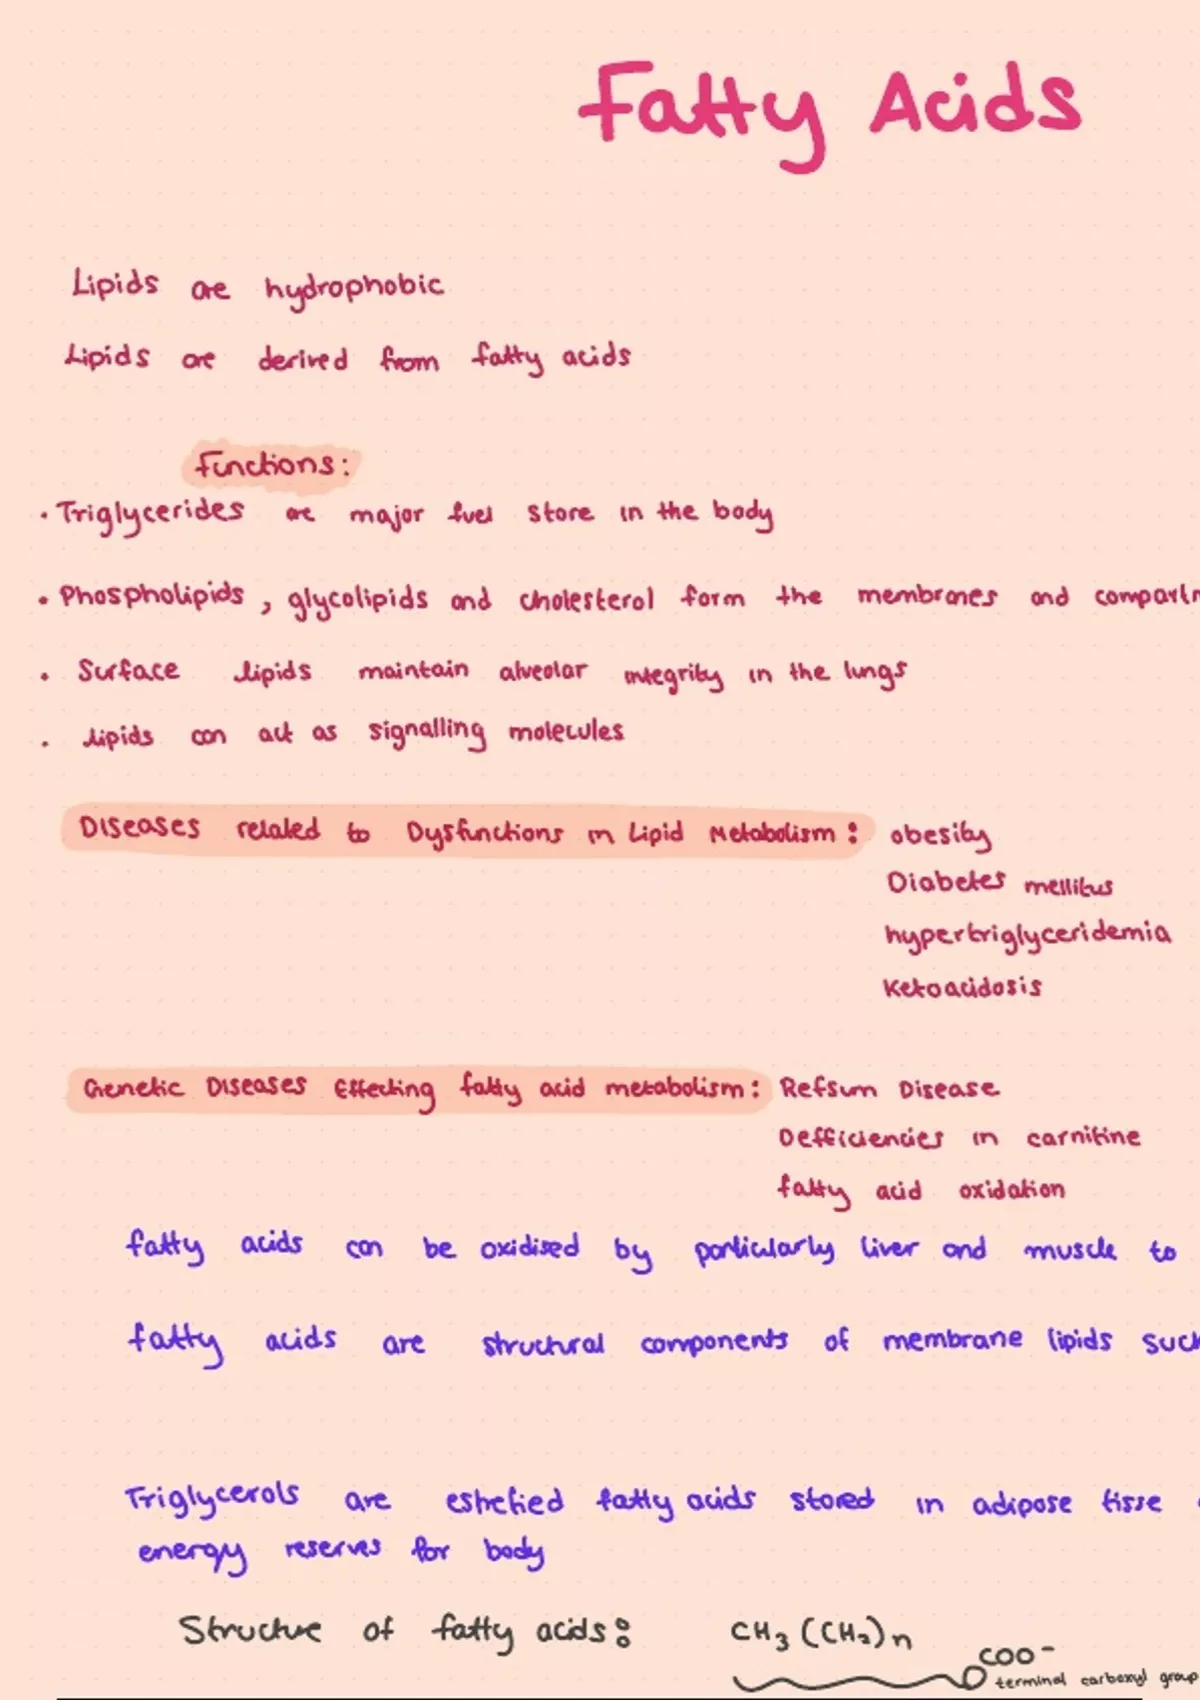 Fatty Acids
Lipids are hydrophobic
Lipids are derived from fatty acids
Functions:
• Triglycerides are major fuel store in the body
• Phospholipids, glycolipids and cholesterol form the membranes and compartm
• Surface lipids maintain alveolar integrity in the lungs
• Lipids can act as signalling molecules
Diseases related to Dysfunctions in Lipid Metabolism: obesity
Diabetes mellitus
hypertriglyceridemia
Ketoacidosis
Genetic Diseases Effecting fatty acid metabolism: Refsum Disease
Defficiencies in carnitine
fatty acid oxidation
fatty acids can be oxidised by particularly liver and muscle to
fatty acids are structural components of membrane lipids such
Triglycerols are estrefied fatty acids stored in adipose tisse
energy reserves for body
Structure of fatty acids: CH3(CH2)n
COO-
terminal carboxyl group